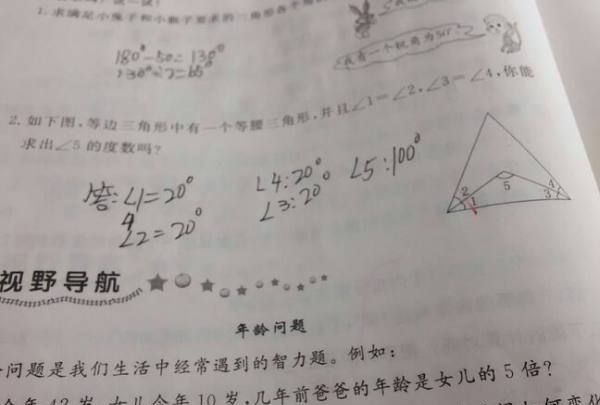 1. 求满足小兔子和小猴子要求的三角形各个角
我有一个
我有一个锐角为50°.
180°-50=138°
130°÷2=65°
2. 如下图,等边三角形中有一个等腰三角形,并且∠1=∠2,∠3=∠4,你能
求出∠5的度数吗?
答:∠1=20°
∠4:20°
∠5:100°
∠2=20°
∠3:20°
2
1
5
3
4
视野导航
年龄问题
问题是我们生活中经常遇到的智力题。例如:
今年42岁,女儿今年10岁,几年前爸爸的年龄是女儿的5倍?